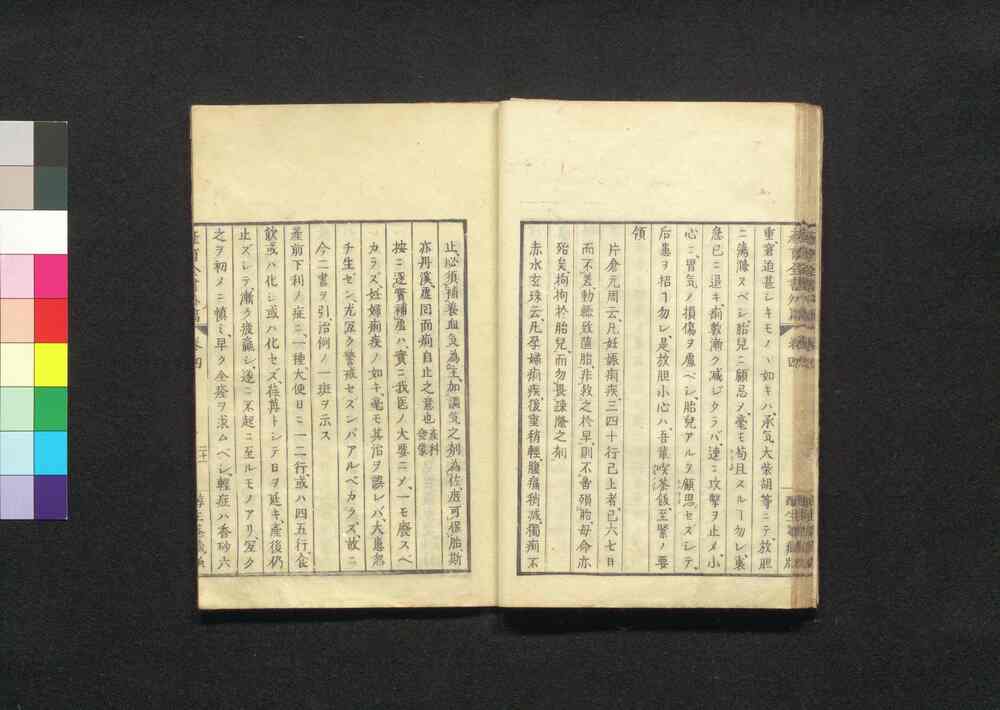 重窘迫甚シキモノヽ如キハ承气大柴胡等ニテ放胆
ニ蕩滌スベシ胎兒ニ顧忌ヲ毫モ苟且スルヿ勿レ裏
急已ニ退キ痢数漸ク减ジタラバ速ニ攻擊ヲ止メ小
心ニ胃気ノ損傷ヲ慮ベシ胎兒アルヲ顧思セズシテ
后患ヲ招ク勿レ是放胆小心ハ吾輩喫茶飯至緊ノ要
領
片倉元周云凡妊娠痢疾三四十行已上者已六七日
而不差動輙致墮胎非救之於早則不啻殞胞母命亦
殆矣拘拘於胎兒而勿畏疎滌之剤
赤水玄珠云凡孕婦痢疾後重稍輕腹痛稍减獨痢不
止必須補養血気為主加調気之剤為佐庻可保胎斯
亦丹溪虚回而痢自止之意也産科
按ニ逐實補虚ハ實ニ我医ノ大要ニメ一モ廢スベ
カラズ妊婦痢疾ノ如キ毫モ其治ヲ誤レバ大患忽
チ生ゼン尤冝ク警戒セズンバアルベカラズ故ニ
今二書ヲ引治例ノ一斑ヲ示ス
産前下利ノ症ニ一種大便日ニ一二行或ハ四五行食
飮或ハ化シ或ハ化セズ荏苒トシテ日ヲ延キ産後仍
止ズシテ漸ク疲羸シ遂ニ不起ニ至ルモノアリ冝ク
之ヲ初メニ慎ミ早ク全癒ヲ求ムベシ輕症ハ香砂六